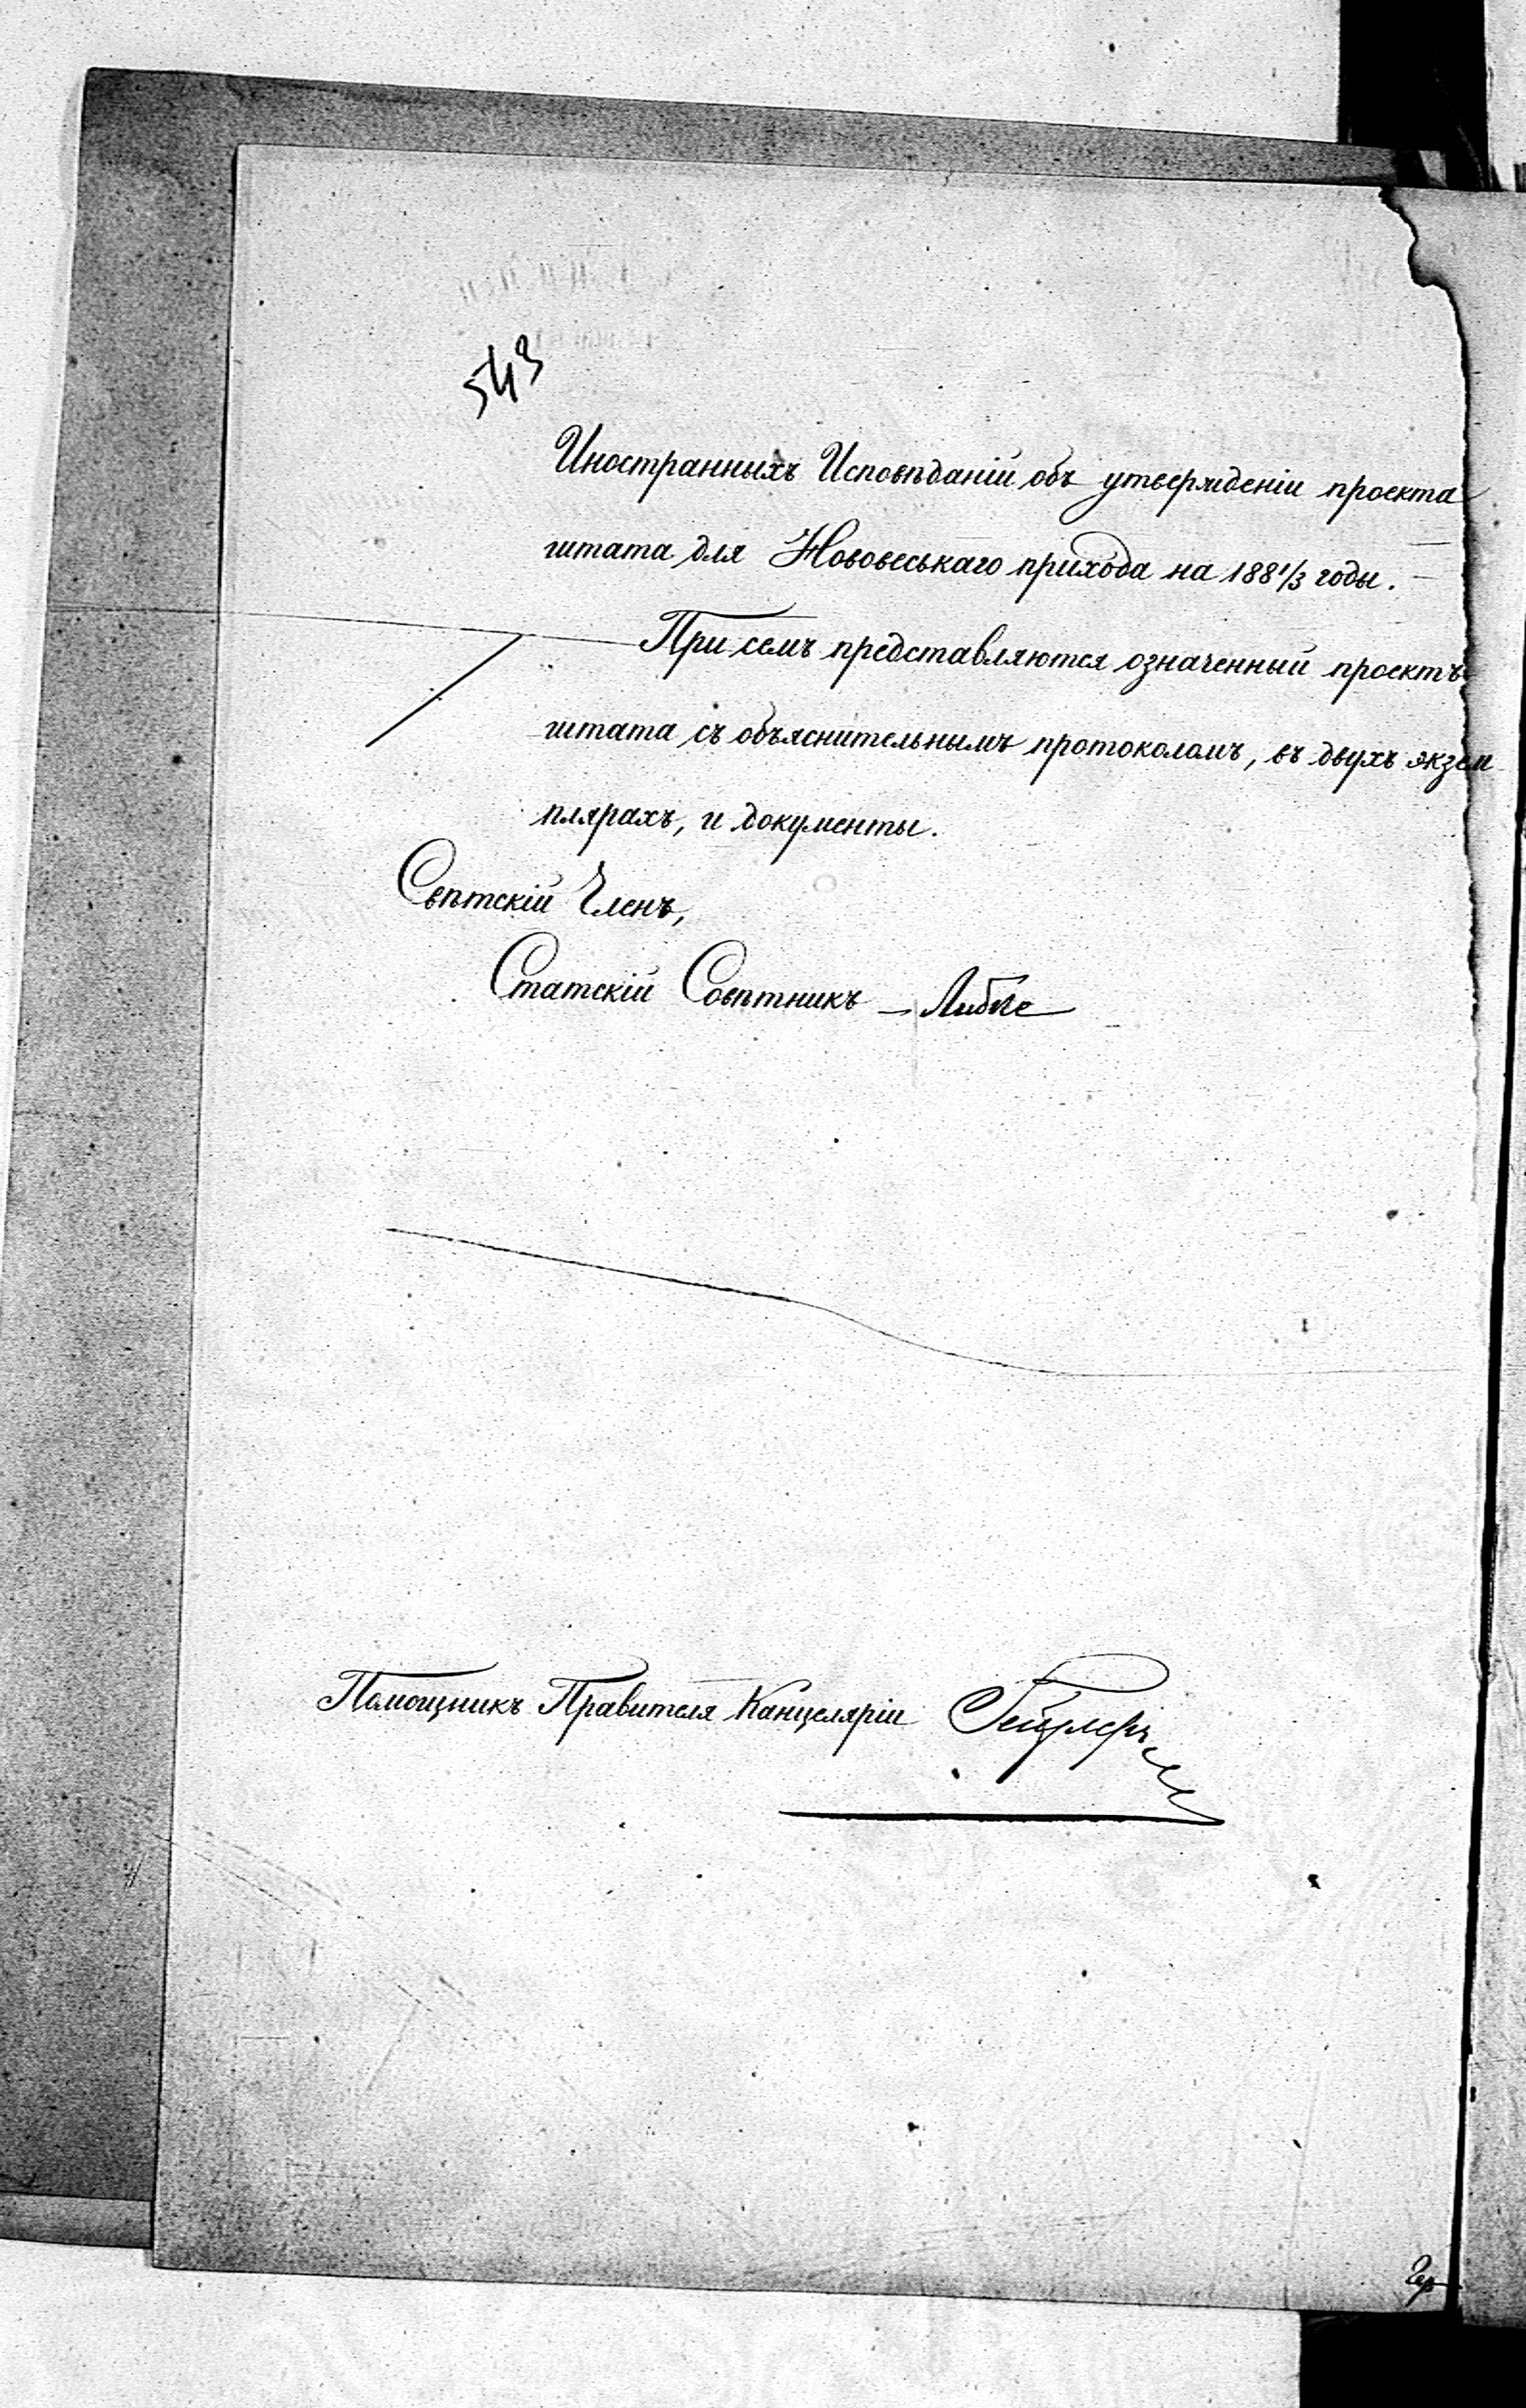 543
Иностранныхъ Исповѣданій объ утвержденіи проекта
штата для Нововеськаго прихода на 188 1/3 годы.
При семъ представляются означенный проектъ
штата съ объяснительнымъ протоколомъ, въ двухъ экзем
плярахъ, и документы.
Свѣтскій Членъ,
Статскій Совѣтникъ
Помощникъ Правителя Канцеляріи